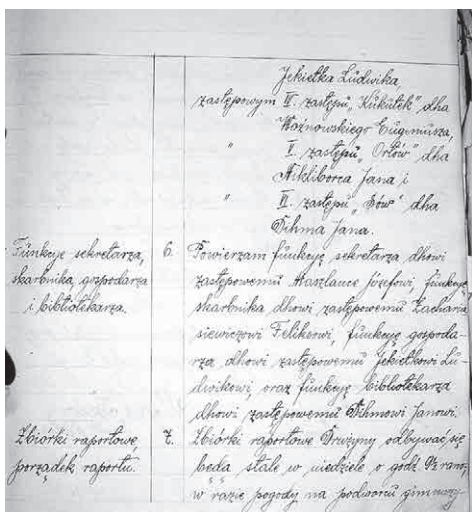 Jekiełka Ludwika,
zastępowym IV. zastępu „Kukułek" dha
Woźnowskiego Eugeniusza,
" V. zastępu „Orłów" dha
Nikliborca Jana i
" VI. zastępu „Sów" dha
Dihma Jana.
Funkcye sekretarza,
skarbnika, gospodarza
i bibliotekarza.
6. Powierzam funkcyę sekretarza dhowi
zastępowemu Maszlance Józefowi, funkcyę
skarbnika dhowi zastępowemu Zacharia
siewiczowi Feliksowi, funkcyę gospoda-
rza dhowi zastępowemu Jekiełkowi Lu-
dwikowi, oraz funkcyę bibliotekarza
dhowi zastępowemu Dihmowi Janowi.
Zbiórki raportowe,
porządek raportu.
7. Zbiórki raportowe Drużyny odbywać się
będą stale w niedziele o godź. rano,
w razie pogody na podwórzu gimnazy-